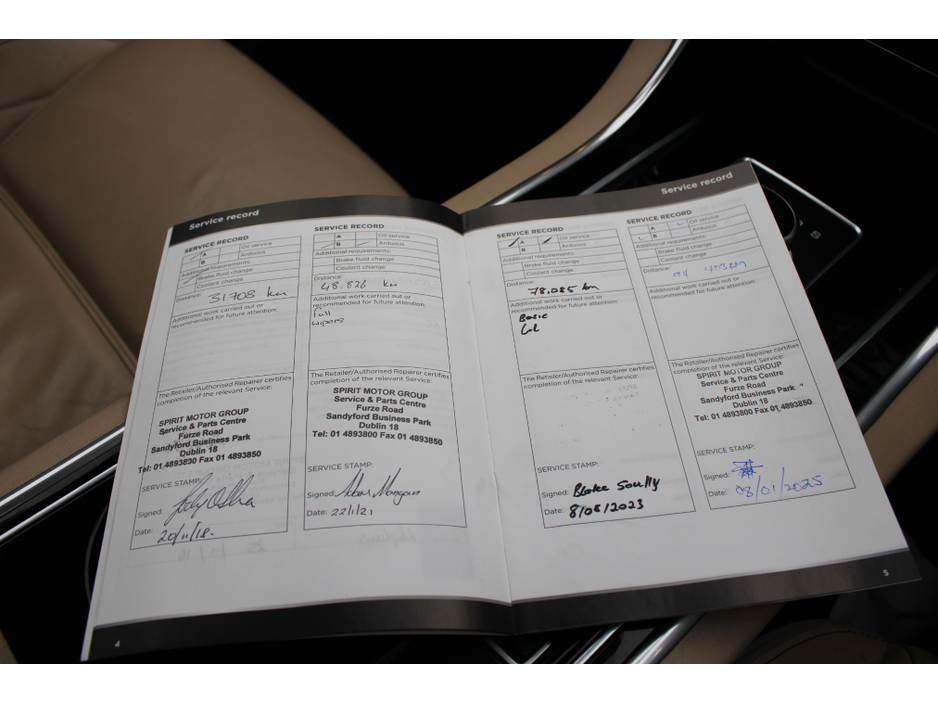 Service record
SERVICE RECORD
A Oil service
B Arduous
Additional requirements:
Brake fluid change
Coolant change
Distance:
31708 km
Additional work carried out or
recommended for future attention:
The Retailer/Authorised Repairer certifies
completion of the relevant Service:
SPIRIT MOTOR GROUP
Service & Parts Centre
Furze Road
Sandyford Business Park
Dublin 18
Tel: 01 4893800 Fax 01 4893850
SERVICE STAMP:
Signed:
Date: 20/11/18.
SERVICE RECORD
A Oil service
B Arduous
Additional requirements:
Brake fluid change
Coolant change
Distance:
48.826 km
Additional work carried out or
recommended for future attention:
Full
wipers
The Retailer/Authorised Repairer certifies
completion of the relevant Service:
SPIRIT MOTOR GROUP
Service & Parts Centre
Furze Road
Sandyford Business Park
Dublin 18
Tel: 01 4893800 Fax 01 4893850
SERVICE STAMP:
Signed:
Date: 22/1/21
4
Service record
SERVICE RECORD
A Oil service
B Arduous
Additional requirements:
Brake fluid change
Coolant change
Distance:
78.085 km
Additional work carried out or
recommended for future attention:
Basic
The Retailer/Authorised Repairer certifies
completion of the relevant Service:
SERVICE STAMP:
Signed: Blake Scully
Date: 8/08/2023
SERVICE RECORD
A Oil service
B Arduous
Additional requirements:
Brake fluid change
Coolant change
Distance:
94 403KM
Additional work carried out or
recommended for future attention:
The Retailer/Authorised Repairer certifies
completion of the relevant Service:
SPIRIT MOTOR GROUP
Service & Parts Centre
Furze Road
Sandyford Business Park
Dublin 18
Tel: 01 4893800 Fax 01 4893850
SERVICE STAMP:
Signed:
Date: 08/01/2025
5
S